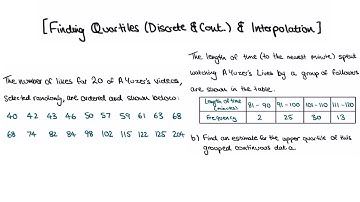 [Finding Quartiles (Discrete & Cont.) & Interpolation]
The number of likes for 20 of A Yuzer's videos,
selected randomly, are ordered and shown below:
40 42 43 46 50 57 59 61 63 68
68 74 82 84 98 102 115 122 125 204
The length of time (to the nearest minute) spent
watching A Yuzer's Lives by a group of followers
are shown in the table.
Length of time (minutes) 81-90 91-100 101-110 111-120
Frequency 2 25 30 13
b) Find an estimate for the upper quartile of this
grouped continuous data.